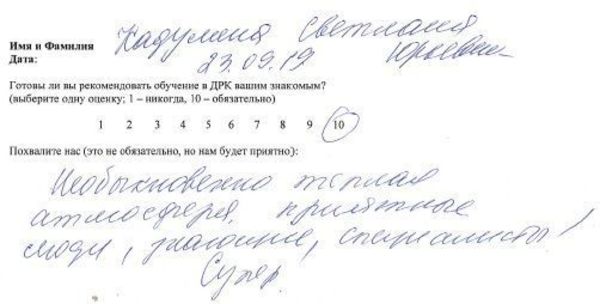 Имя и Фамилия Кадулина Светлана
Дата: 23.09.19 Юрьевна
Готовы ли вы рекомендовать обучение в ДРК вашим знакомым?
(выберите одну оценку; 1 – никогда, 10 – обязательно)
1 2 3 4 5 6 7 8 9 10
Похвалите нас (это не обязательно, но нам будет приятно):
Необыкновенно тёплая
атмосфера, приятные
люди, знающие, специалисты!
Супер.